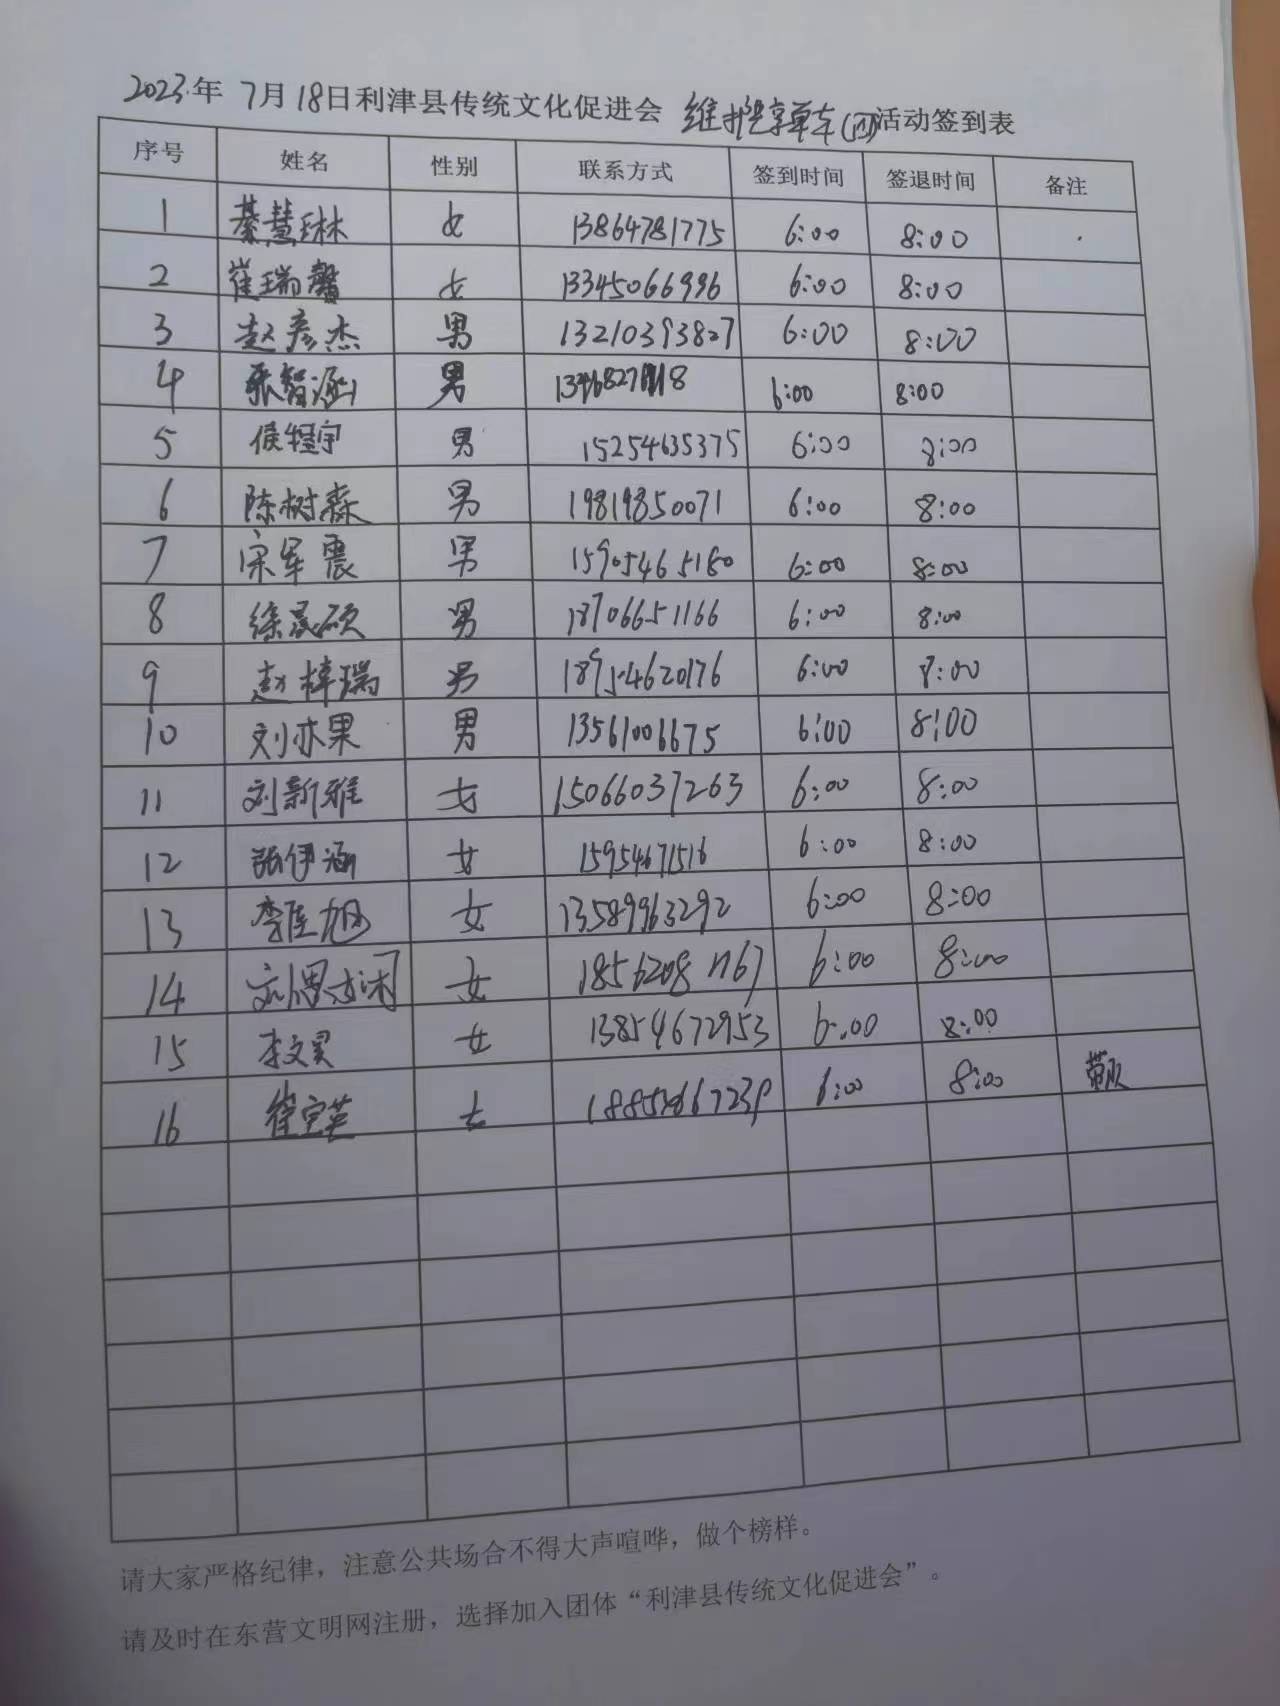 2023年 7月18日利津县传统文化促进会 维护共享单车(四)活动签到表
序号 姓名 性别 联系方式 签到时间 签退时间 备注
1 綦慧琳 女 13864781775 6:00 8:00
2 崔瑞馨 女 13345066996 6:00 8:00
3 赵彦杰 男 13210393827 6:00 8:00
4 张智涵 男 6:00 8:00
5 男 15254635375 6:00 8:00
6 陈树森 男 19819850071 6:00 8:00
7 宋军震 男 15905465180 6:00 8:00
8 徐晟硕 男 18706651166 6:00 8:00
9 赵梓瑞 男 6:00 8:00
10 刘亦果 男 13561006675 6:00 8:00
11 刘新雅 女 15066037263 6:00 8:00
12 张伊涵 女 15954671516 6:00 8:00
13 李佳旭 女 13589963292 6:00 8:00
14 女 6:00 8:00
15 李文昊 女 13854672953 6:00 8:00
16 崔宝英 女 6:00 8:00 带队
请大家严格纪律，注意公共场合不得大声喧哗，做个榜样。
请及时在东营文明网注册，选择加入团体“利津县传统文化促进会”。